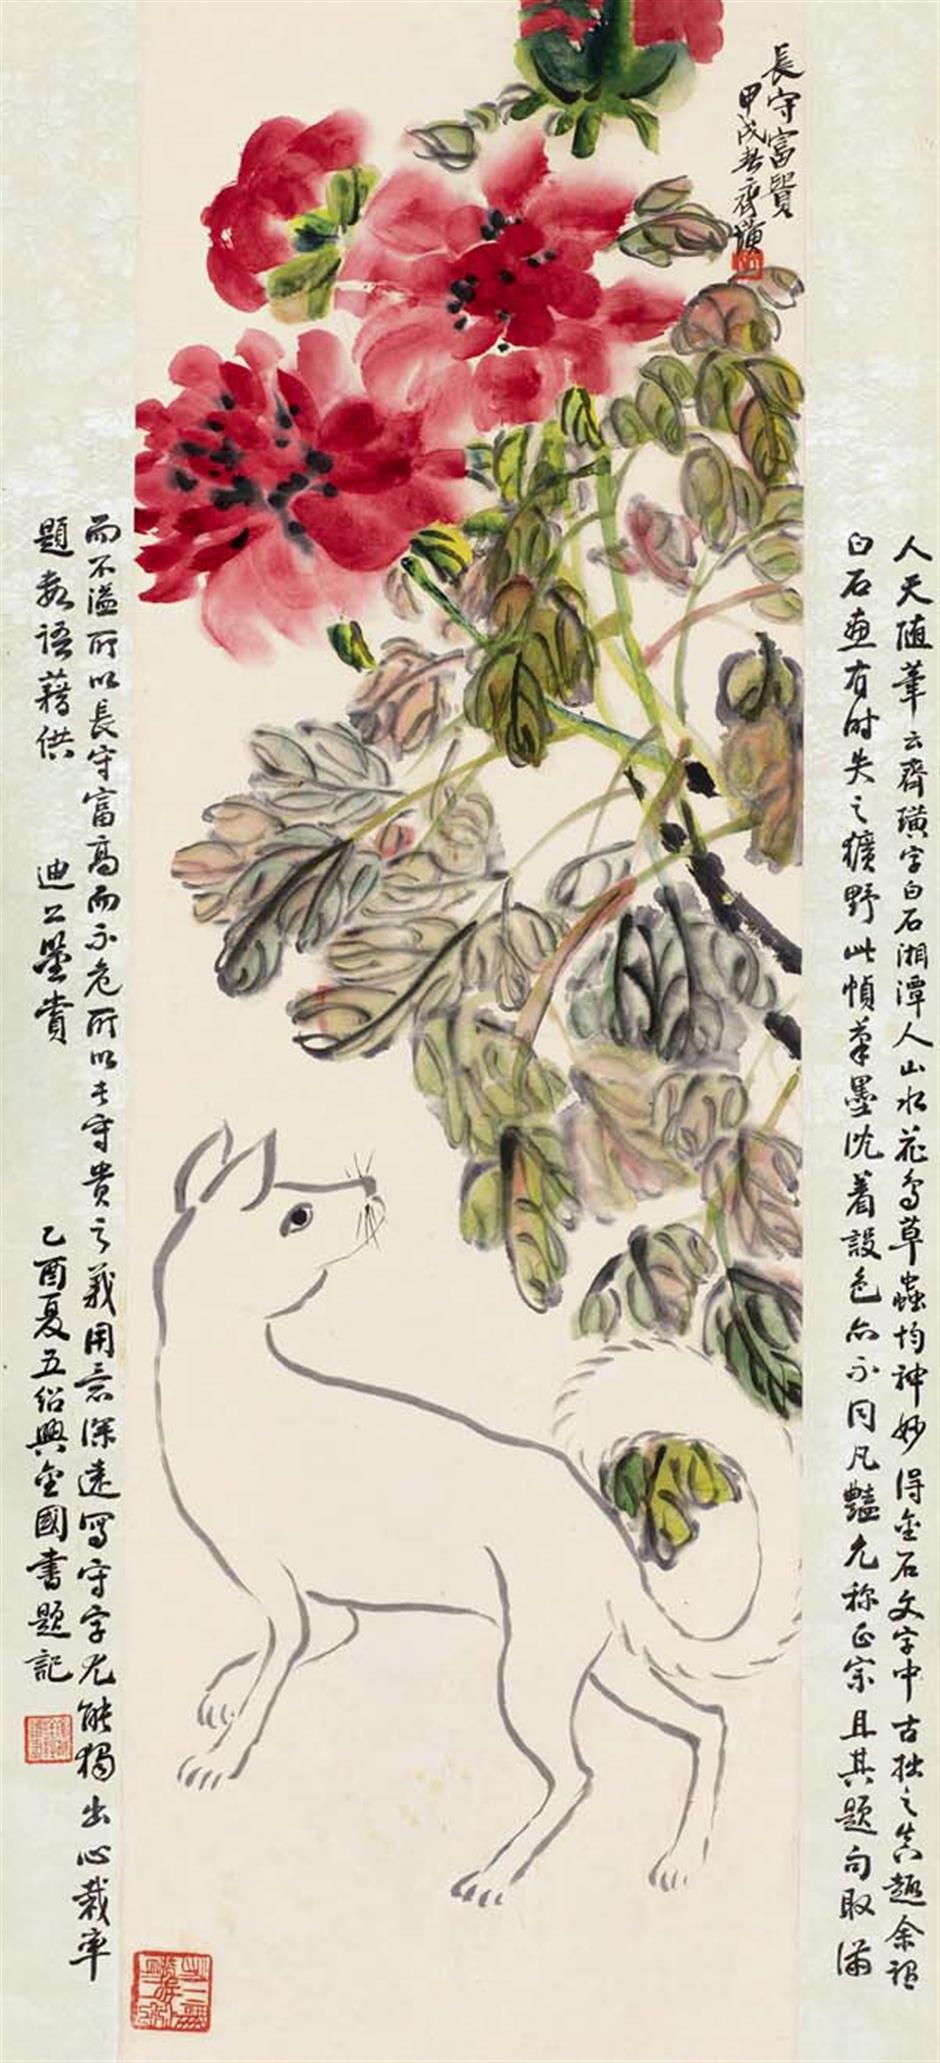 長守富貴
甲戌春齊璜
人天隨筆云齊璜字白石湘潭人山水花鳥草蟲均神妙得金石文字中古拙之真趣余視
白石畫有時失之獷野此幀筆墨沈着設色亦不同凡豔尤稱正宗且其題句取滿
而不溢所以長守富高而不危所以長守貴之義用意深遠寫守字尤能獨出心裁率
題數語藉供
迪公鑒賞
乙酉夏五紹興金國書題記